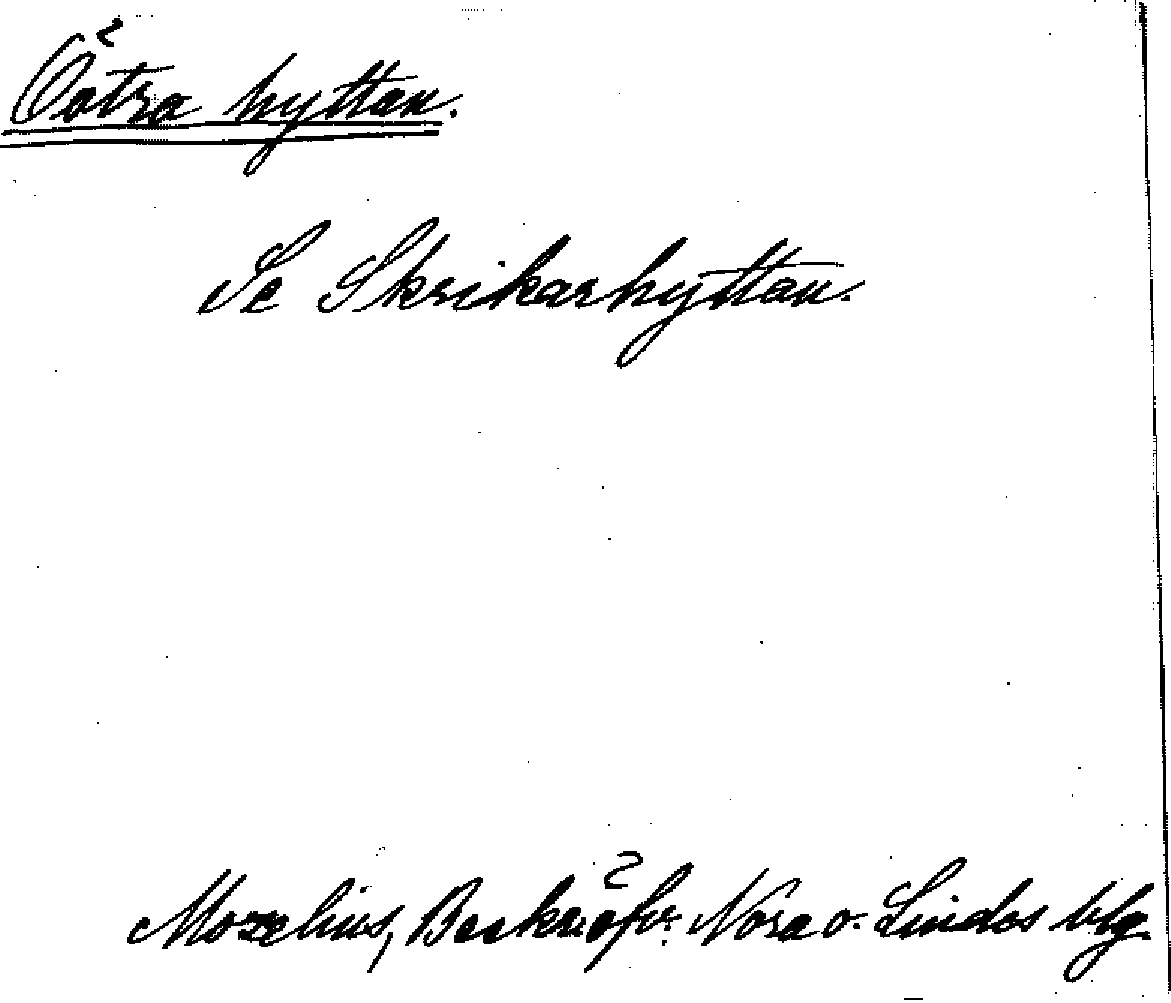 Östra hyttan.
Se Skrikarhyttan.
Mozelius, Beskrifn. Nora o. Lindes blg.